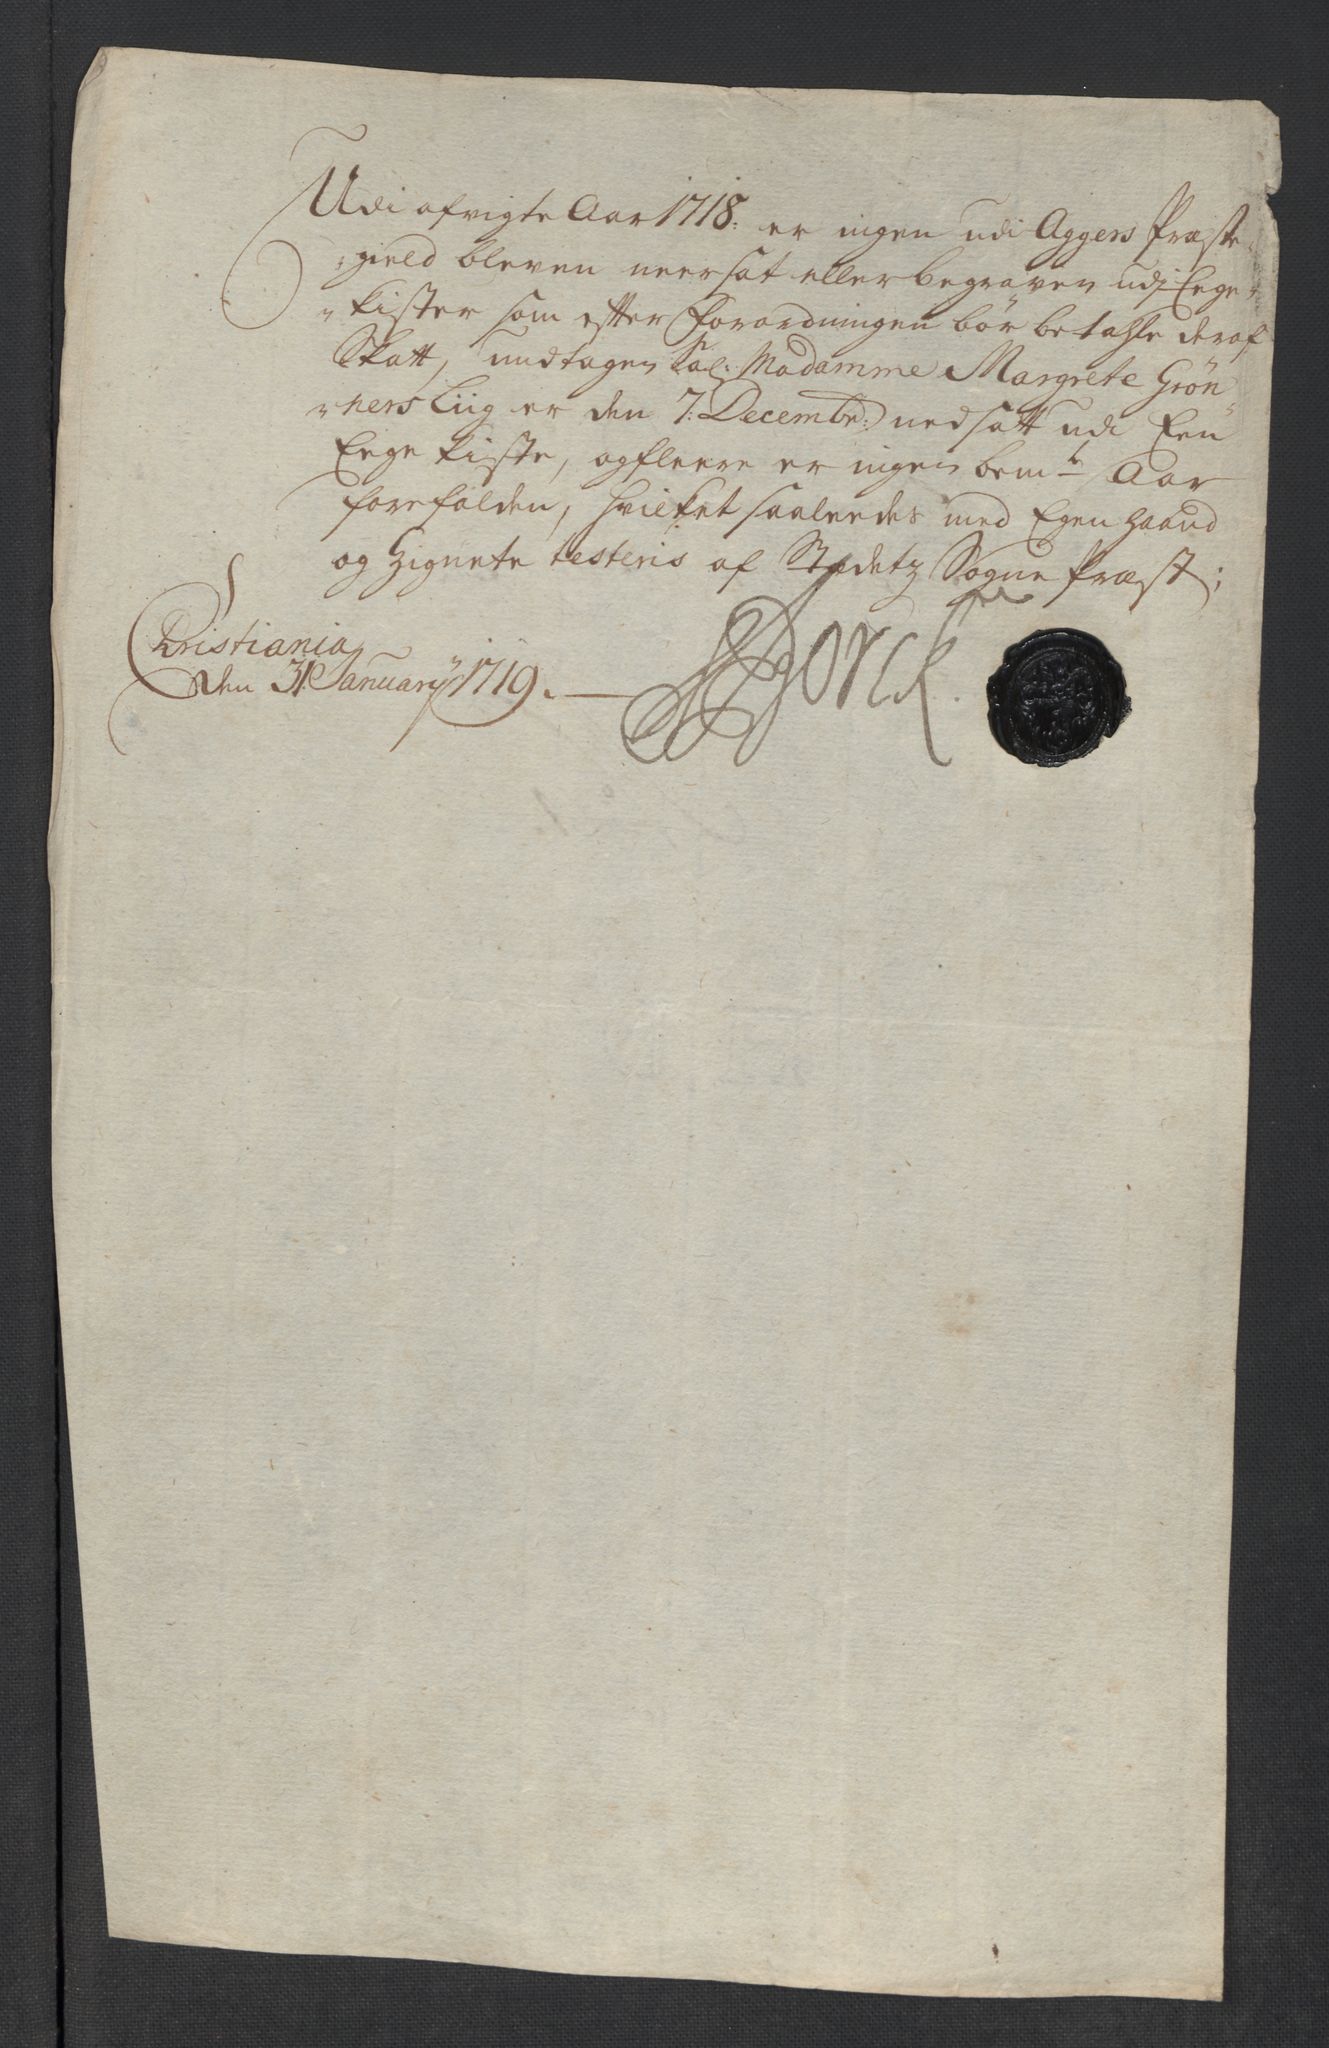 Udi afvigte Aar 1718: er ingen udi Aggers Præste-
-gield bleven neersat eller begraven udj Eege-
-kister som efter Forordningen bör betahle deraf
Skatt, undtagen Sal: Madamme Margrete Grön-
-ners Liig er den 7: Decembr: nedsatt udi Een
Eege kiste, og fleere er ingen bem:te Aar
forefalden, hvilket saaleedes med Egen haand
og Zignete testeris af Stedetz Sogne Præst;
Christiania
den 31 January 1719.